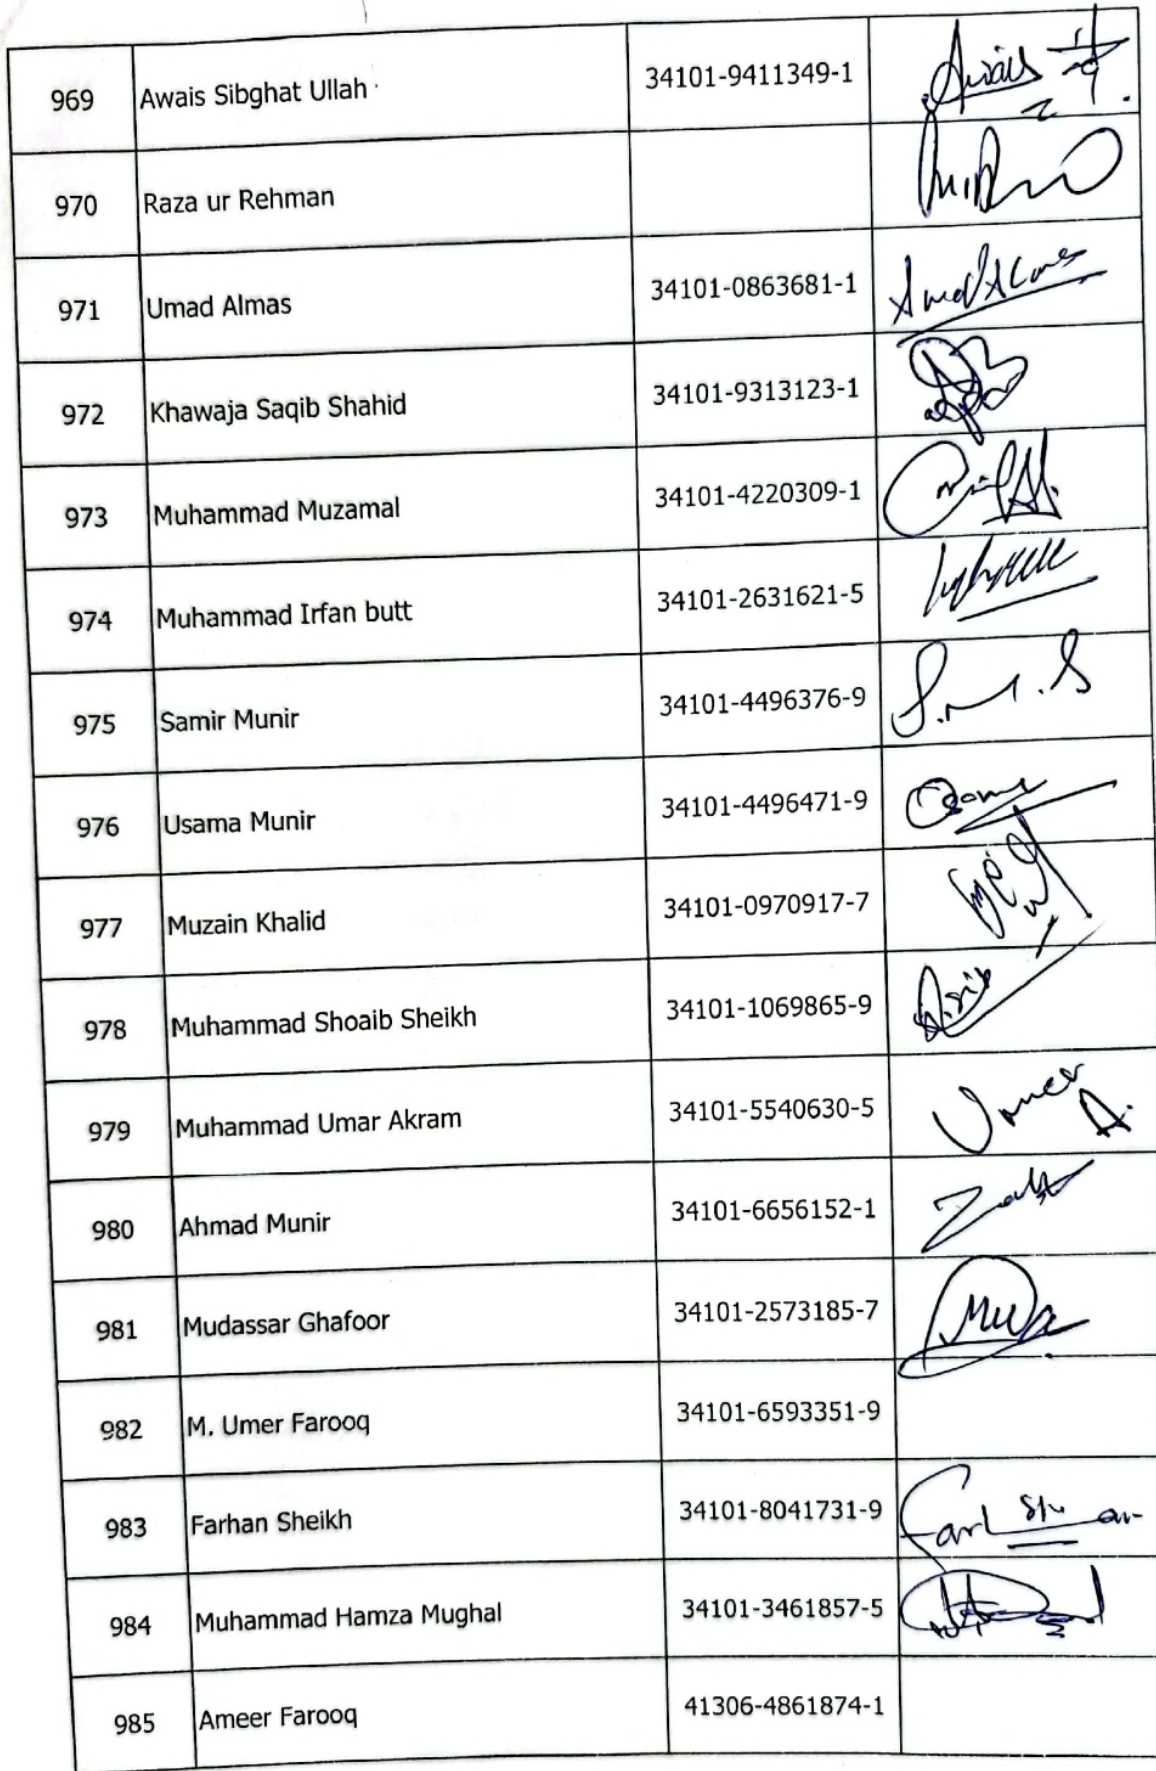 969 Awais Sibghat Ullah 34101-9411349-1 Awais
970 Raza ur Rehman
971 Umad Almas 34101-0863681-1
972 Khawaja Saqib Shahid 34101-9313123-1
973 Muhammad Muzamal 34101-4220309-1
974 Muhammad Irfan butt 34101-2631621-5
975 Samir Munir 34101-4496376-9
976 Usama Munir 34101-4496471-9
977 Muzain Khalid 34101-0970917-7
978 Muhammad Shoaib Sheikh 34101-1069865-9
979 Muhammad Umar Akram 34101-5540630-5 Umer A.
980 Ahmad Munir 34101-6656152-1
981 Mudassar Ghafoor 34101-2573185-7
982 M. Umer Farooq 34101-6593351-9
983 Farhan Sheikh 34101-8041731-9
984 Muhammad Hamza Mughal 34101-3461857-5
985 Ameer Farooq 41306-4861874-1